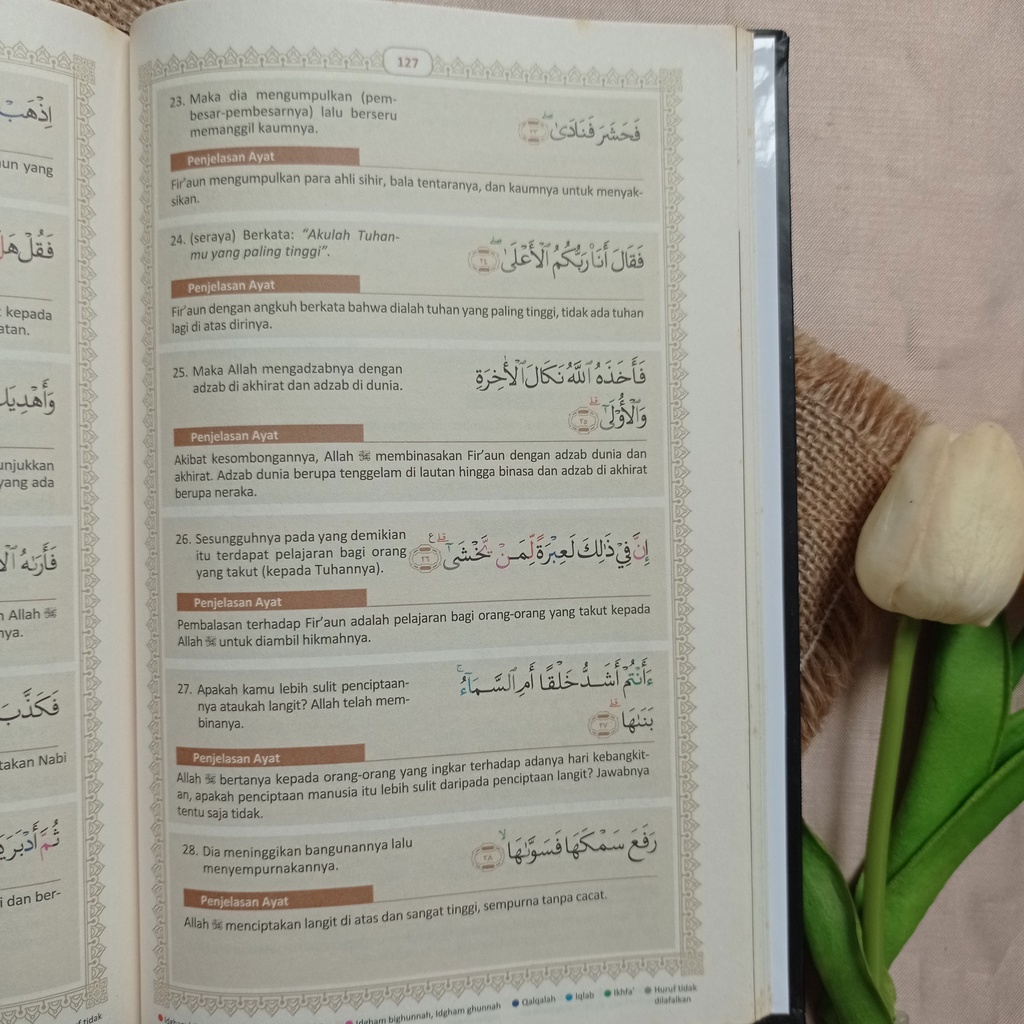 اِذْهَبْ
فَقُلْ هَلْ
kepada
atan.
وَأَهْدِيَكَ
unjukkan
yang ada
فَأَرَىٰهُ
n Allah ﷻ
nya.
فَكَذَّبَ
takan Nabi
ثُمَّ أَدْبَرَ
i dan ber-
127
23. Maka dia mengumpulkan (pem-
besar-pembesarnya) lalu berseru
memanggil kaumnya.
فَحَشَرَ فَنَادَىٰ ۖ ٢٣
Penjelasan Ayat
Fir'aun mengumpulkan para ahli sihir, bala tentaranya, dan kaumnya untuk menyak-
sikan.
24. (seraya) Berkata: “Akulah Tuhan-
mu yang paling tinggi”.
فَقَالَ أَنَا۠ رَبُّكُمُ ٱلْأَعْلَىٰ ۖ ٢٤
Penjelasan Ayat
Fir'aun dengan angkuh berkata bahwa dialah tuhan yang paling tinggi, tidak ada tuhan
lagi di atas dirinya.
25. Maka Allah mengadzabnya dengan
adzab di akhirat dan adzab di dunia.
فَأَخَذَهُ ٱللَّهُ نَكَالَ ٱلْأَخِرَةِ
وَٱلْأُولَىٰٓ ۗ ٢٥
Penjelasan Ayat
Akibat kesombongannya, Allah ﷻ membinasakan Fir'aun dengan adzab dunia dan
akhirat. Adzab dunia berupa tenggelam di lautan hingga binasa dan adzab di akhirat
berupa neraka.
26. Sesungguhnya pada yang demikian
itu terdapat pelajaran bagi orang
yang takut (kepada Tuhannya).
إِنَّ فِى ذَٰلِكَ لَعِبْرَةً لِّمَنْ يَّخْشَىٰٓ ۗ ع ٢٦
Penjelasan Ayat
Pembalasan terhadap Fir'aun adalah pelajaran bagi orang-orang yang takut kepada
Allah ﷻ untuk diambil hikmahnya.
27. Apakah kamu lebih sulit penciptaan-
nya ataukah langit? Allah telah mem-
binanya.
ءَأَنْتُمْ أَشَدُّ خَلْقًا أَمِ ٱلسَّمَآءُ ۚ
بَنَىٰهَا ۗ ٢٧
Penjelasan Ayat
Allah ﷻ bertanya kepada orang-orang yang ingkar terhadap adanya hari kebangkit-
an, apakah penciptaan manusia itu lebih sulit daripada penciptaan langit? Jawabnya
tentu saja tidak.
28. Dia meninggikan bangunannya lalu
menyempurnakannya.
رَفَعَ سَمْكَهَا فَسَوَّىٰهَا ۙ ٢٨
Penjelasan Ayat
Allah ﷻ menciptakan langit di atas dan sangat tinggi, sempurna tanpa cacat.
Idgham bighunnah, Idgham ghunnah Qalqalah Iqlab Ikhfa' Huruf tidak
dilafalkan